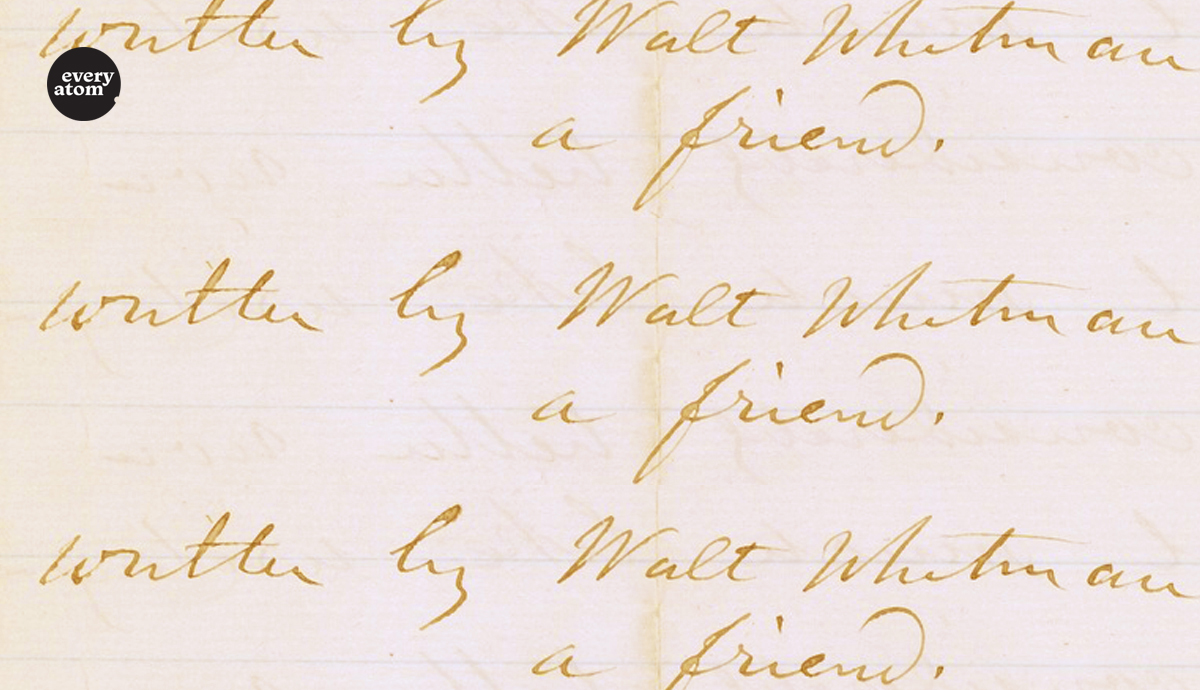 written by Walt Whitman
every
atom
a friend.
written by Walt Whitman
a friend.
written by Walt Whitman
a friend.